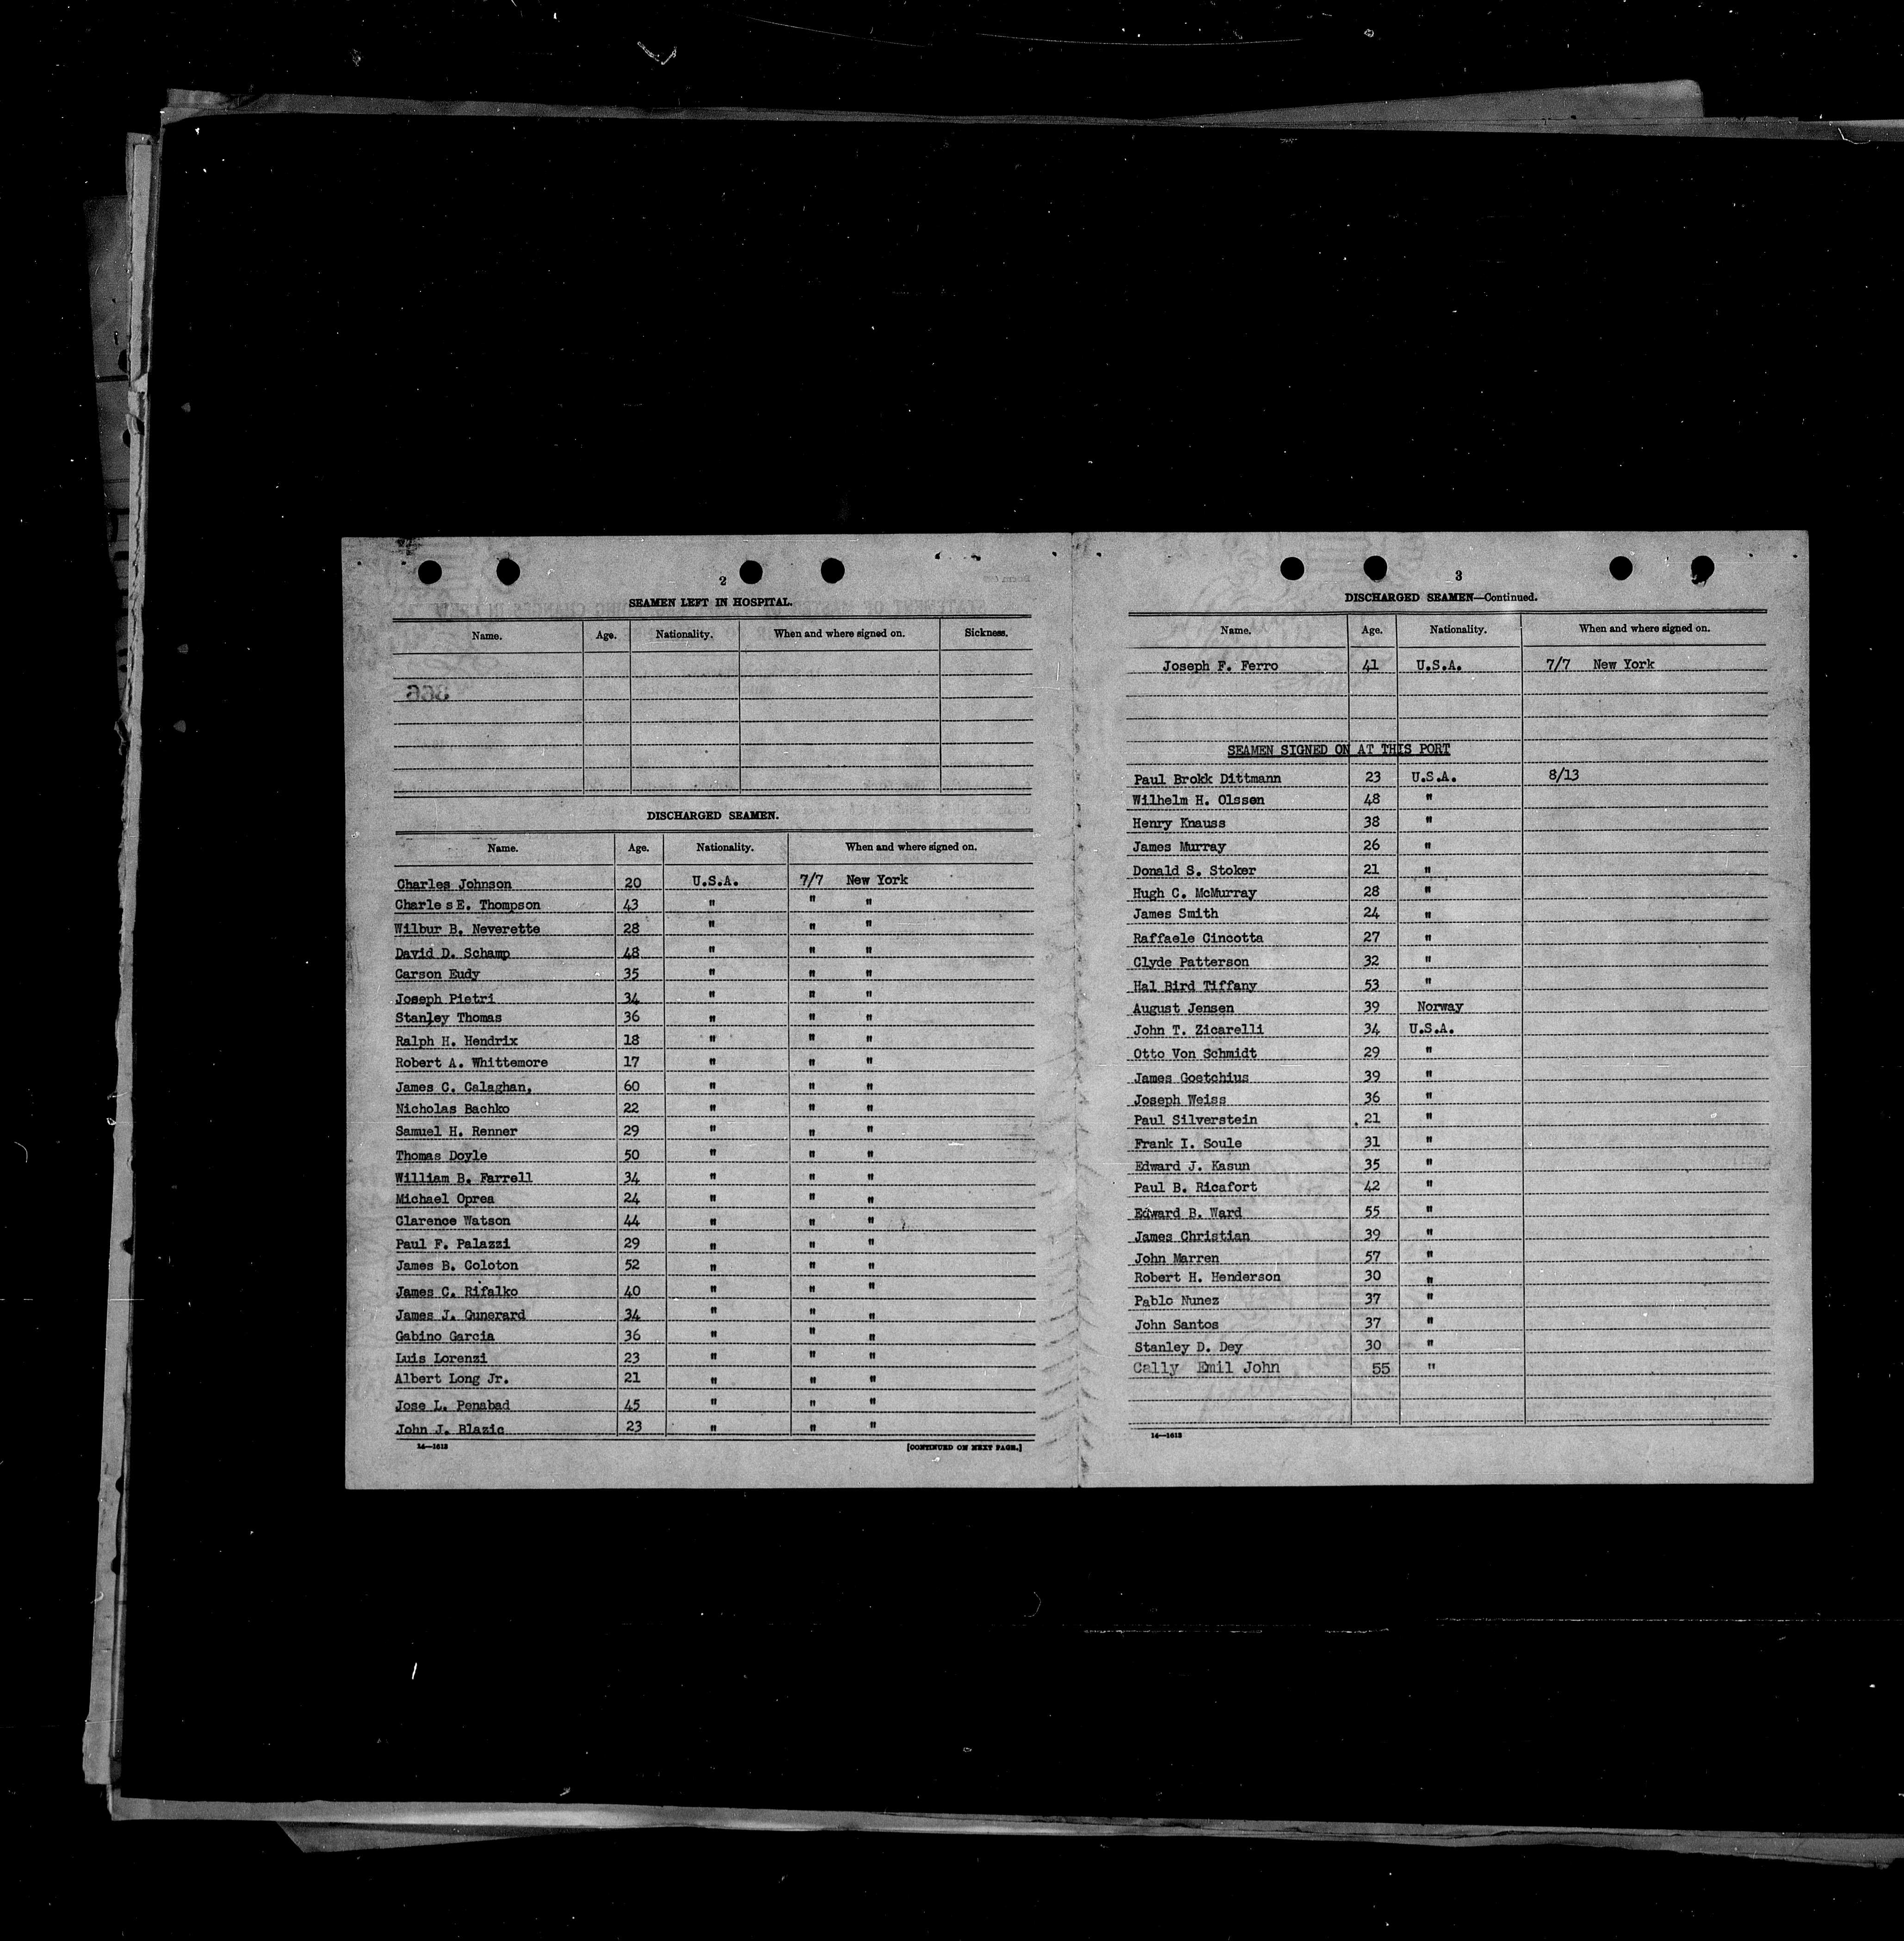 2
SEAMEN LEFT IN HOSPITAL.
Name. Age. Nationality. When and where signed on. Sickness.
DISCHARGED SEAMEN.
Name. Age. Nationality. When and where signed on.
Charles Johnson 20 U.S.A. 7/7 New York
Charle sE. Thompson 43 " " "
Wilbur B. Neverette 28 " " "
David D. Schamp 48 " " "
Carson Eudy 35 " " "
Joseph Pietri 34 " " "
Stanley Thomas 36 " " "
Ralph H. Hendrix 18 " " "
Robert A. Whittemore 17 " " "
James C. Calaghan, 60 " " "
Nicholas Bachko 22 " " "
Samuel H. Renner 29 " " "
Thomas Doyle 50 " " "
William B. Farrell 34 " " "
Michael Oprea 24 " " "
Clarence Watson 44 " " "
Paul F. Palazzi 29 " " "
James B. Coloton 52 " " "
James C. Rifalko 40 " " "
James J. Gunerard 34 " " "
Gabino Garcia 36 " " "
Luis Lorenzi 23 " " "
Albert Long Jr. 21 " " "
Jose L. Penabad 45 " " "
John J. Blazic 23 " " "
14—1613 [CONTINUED ON NEXT PAGE.]
3
DISCHARGED SEAMEN—Continued.
Name. Age. Nationality. When and where signed on.
Joseph F. Ferro 41 U.S.A. 7/7 New York
SEAMEN SIGNED ON AT THIS PORT
Paul Brokk Dittmann 23 U.S.A. 8/13
Wilhelm H. Olssen 48 "
Henry Knauss 38 "
James Murray 26 "
Donald S. Stoker 21 "
Hugh C. McMurray 28 "
James Smith 24 "
Raffaele Cincotta 27 "
Clyde Patterson 32 "
Hal Bird Tiffany 53 "
August Jensen 39 Norway
John T. Zicarelli 34 U.S.A.
Otto Von Schmidt 29 "
James Goetchius 39 "
Joseph Weiss 36 "
Paul Silverstein 21 "
Frank I. Soule 31 "
Edward J. Kasun 35 "
Paul B. Ricafort 42 "
Edward B. Ward 55 "
James Christian 39 "
John Marren 57 "
Robert H. Henderson 30 "
Pablo Nunez 37 "
John Santos 37 "
Stanley D. Dey 30 "
Cally Emil John 55 "
14—1613